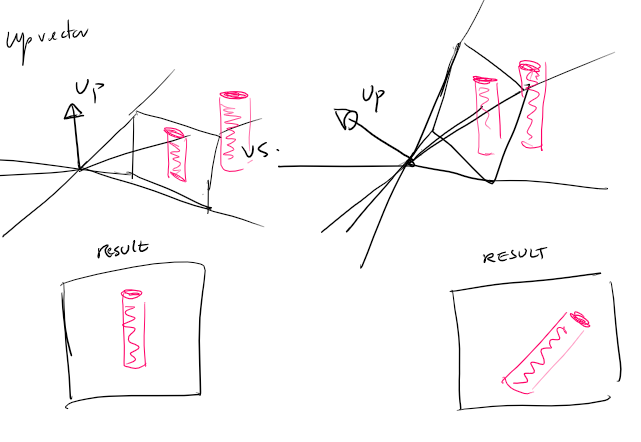 Up vector
UP
UP
VS.
RESULT
RESULT